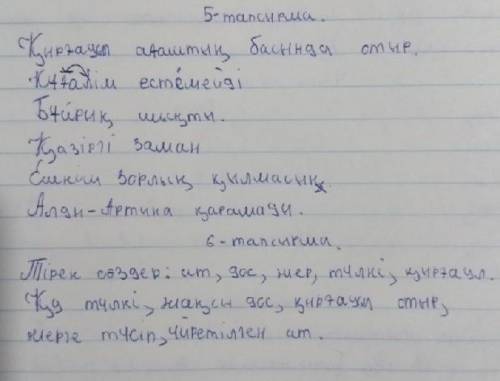 5-тапсырма.
Қырғауыл ағаштың басында отыр.
Құлағым естімейді
Бұйрық шықты.
Қазіргі заман
Ешкім зорлық қылмасын.
Алды-Артина қарамады.
6-тапсырма.
Тірек сөздер: ит, дос, жер, түлкі, қырғауыл.
Қу түлкі, жақсы дос, қырғауыл отыр,
жерге түсіп, үйретілген ит.